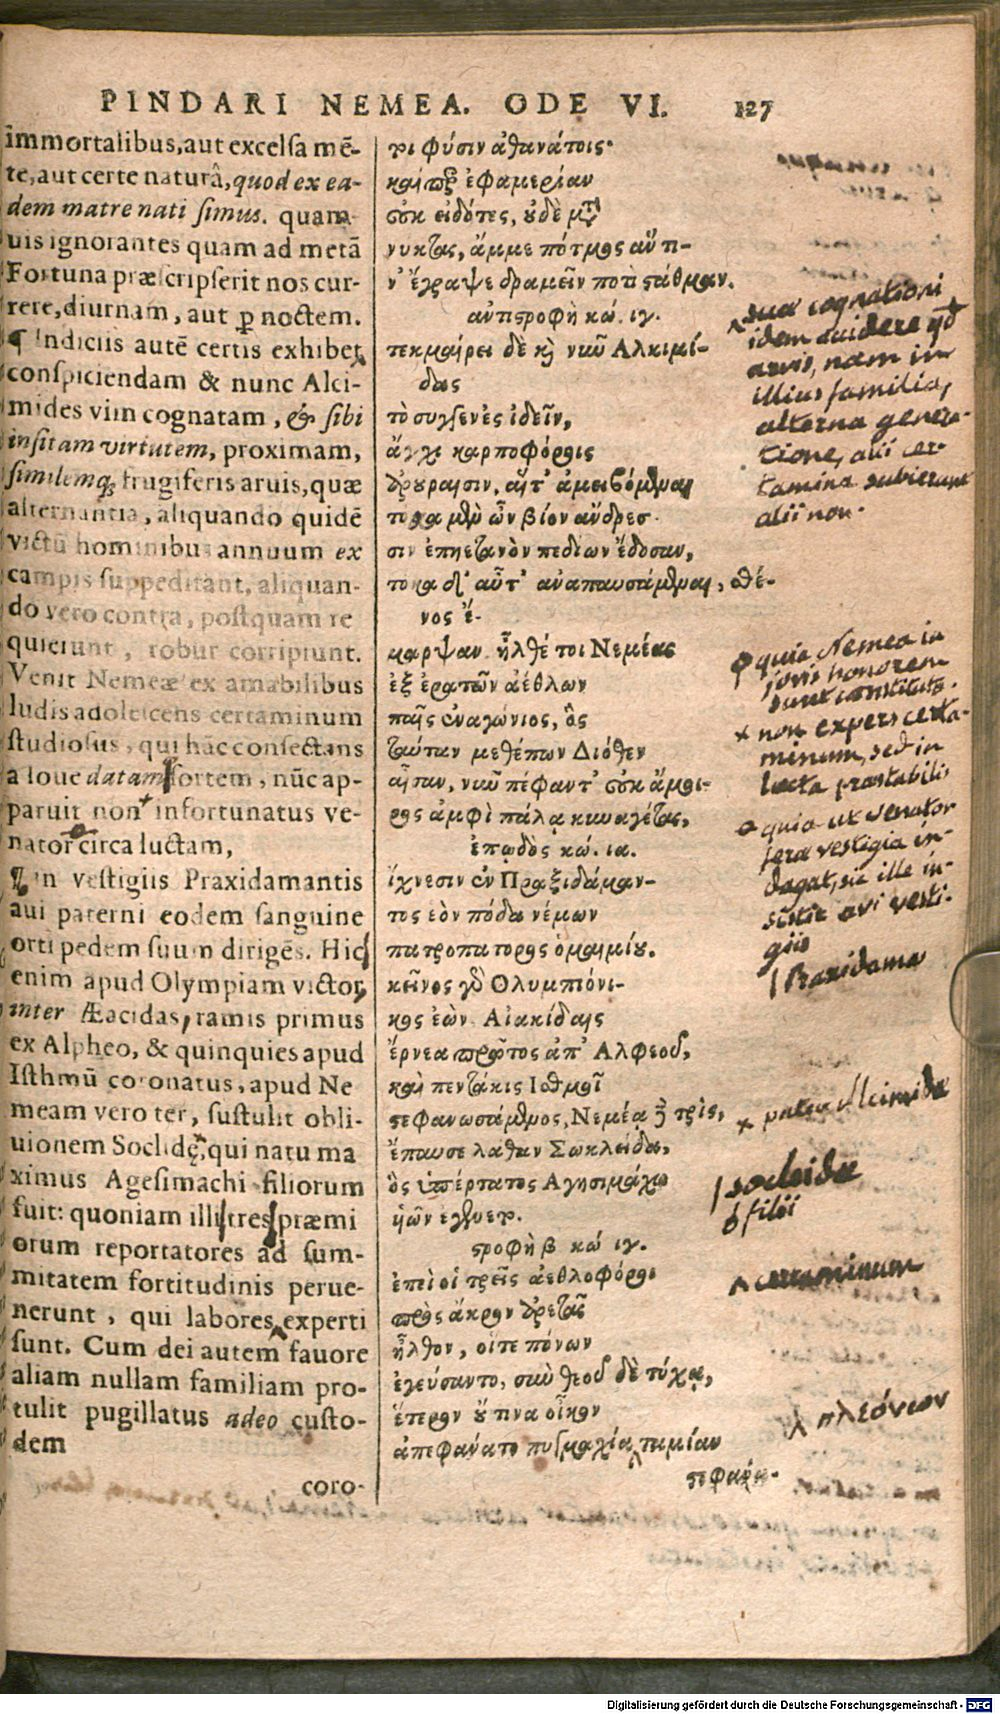 PINDARI NEMEA. ODE VI. 127
immortalibus, aut excelsa mē-
te, aut certe naturâ, quod ex ea-
dem matre nati simus. quam
uis ignorantes quam ad metā
Fortuna præscripserit nos cur-
rere, diurnam, aut ꝑ noctem.
¶ Indiciis autē certis exhibet
conspiciendam & nunc Alci-
mides vim cognatam, & sibi
insitam virtutem, proximam,
similemq; frugiferis aruis, quæ
alternantia, aliquando quidē
victū hominibus annuum ex
campis suppeditant, aliquan-
do vero contra, postquam re
quierunt, robur corripiunt.
Venit Nemeæ ex amabilibus
ludis adolescens certaminum
studiosus, qui hāc consectans
a Ioue datam sortem, nūc ap-
paruit non infortunatus ve-
nator circa luctam,
¶ In vestigiis Praxidamantis
aui paterni eodem sanguine
orti pedem suum dirigēs. Hic
enim apud Olympiam victor
inter Æacidas, ramis primus
ex Alpheo, & quinquies apud
Isthmū coronatus, apud Ne
meam vero ter, sustulit obli-
uionem Soclidę, qui natu ma
ximus Agesimachi filiorum
fuit: quoniam illi tres præmi
orum reportatores ad sum-
mitatem fortitudinis perue-
nerunt, qui labores experti
sunt. Cum dei autem fauore
aliam nullam familiam pro-
tulit pugillatus adeo custo-
dem
coro-
ρι φύσιν ἀθανάτοις·
καίπερ ἐφαμερίαν
οὐκ εἰδότες, οὐδὲ μτι
νυκτας, ἄμμε πότμος αὕτι-
ν' ἔγραψε δραμεῖν ποτὶ στάθμαν.
ἀντιστροφὴ κώ. ιγ.
τεκμαίρει δὲ καὶ νιῦ Ἀλκιμί-
δας
τὸ συγγενὲς ἰδεῖν,
ἄγχι καρποφόροις
ἀρούραισιν, αἵτ' ἀμειβόμεναι
τόκα μὲν ὦν βίον ἀνδρεσ-
σιν ἐπηετανὸν πεδίων ἔδοσαν,
τόκα δ' αὖτ' ἀναπαυσάμεναι, σθέ-
νος ἔ-
μαρψαν. ἦλθέ τοι Νεμέας
ἐξ ἐρατῶν ἀέθλων
παῖς ἐναγώνιος, ὃς
ταύταν μεθέπων Διόθεν
αἶσαν, νῦν πέφαντ' οὐκ ἄμμι-
ρος ἀμφὶ πάλᾳ κυναγέτας,
ἐπῳδὸς κώ. ια.
ἴχνεσιν ἐν Πραξιδάμαν-
τος ἑὸν πόδα νέμων
πατροπάτορος ὁμαιμίου.
κεῖνος γὰρ Ὀλυμπιόνι-
κος ἐὼν Αἰακίδαις
ἔρνεα πρῶτος ἀπ' Ἀλφεοῦ,
καὶ πεντάκις Ἰσθμοῖ
στεφανωσάμενος, Νεμέᾳ δὲ τρὶς,
ἔπαυσε λάθαν Σωκλείδα,
ὃς ὑπέρτατος Ἀγησιμάχῳ
ὑῶν ἐγένετ.
στροφὴ β κώ ιγ.
ἐπεὶ οἱ τρεῖς ἀεθλοφόροι
πρὸς ἄκρον ἀρετᾶς
ἦλθον, οἵτε πόνων
ἐγεύσαντο, σὺν θεοῦ δὲ τύχᾳ,
ἕτερον οὔ τινα οἶκον
ἀπεφάνατο πυγμαχία ταμίαν
στεφάνω-
sua cognationi
idem accidere qđ
arvis, nam in
illius familia,
alterna genera-
tione, alii cer-
tamina subierunt
alii non.
quia Nemea in
jovis honorem
sunt constituta.
non expers certa-
minum, sed in
lucta præstabilis
quia ut venator
fera vestigia in-
dagat, sic ille in-
sistit avi vesti-
giis
Praxidama
x pater Alcimidæ
socleidæ
filii
certaminum
πλεόνων
Digitalisierung gefördert durch die Deutsche Forschungsgemeinschaft - DFG